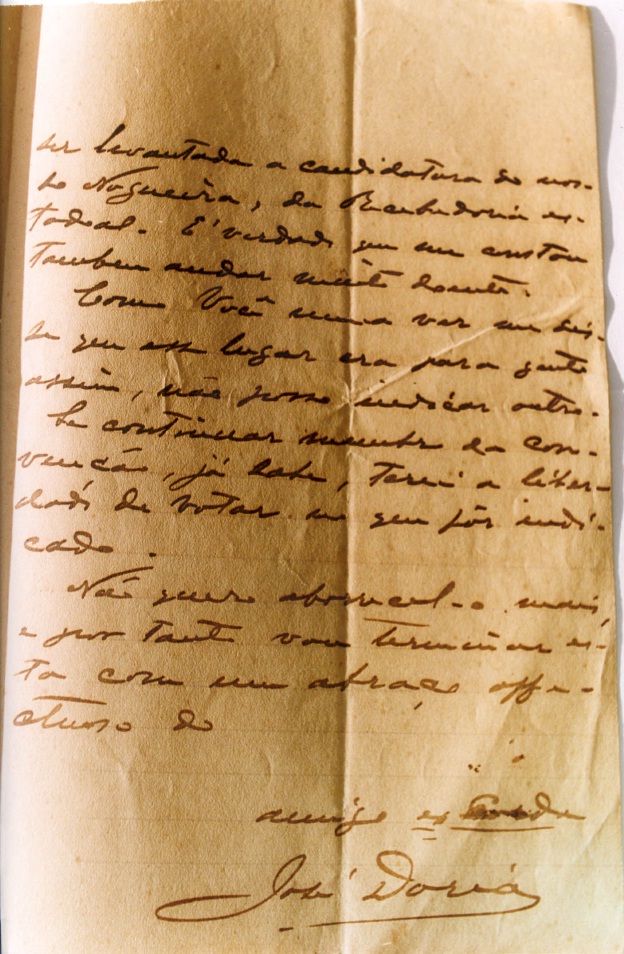 ser levantada a candidatura do nos-
so Nogueira, da Recebedoria es-
tadoal. É verdade que me constou
tambem andar muito doente.
Como Você numa vez me dis-
se que esse lugar era para gente
assim, não posso indicar outro.
Se continuar membro da con-
venção, já sabe, terei a liber-
dade de votar no que fôr indi-
cado.
Não quero aborrecel-o mais,
e por tanto vou terminar es-
ta com um abraço affe-
ctuoso do
amigo ex
José Doria